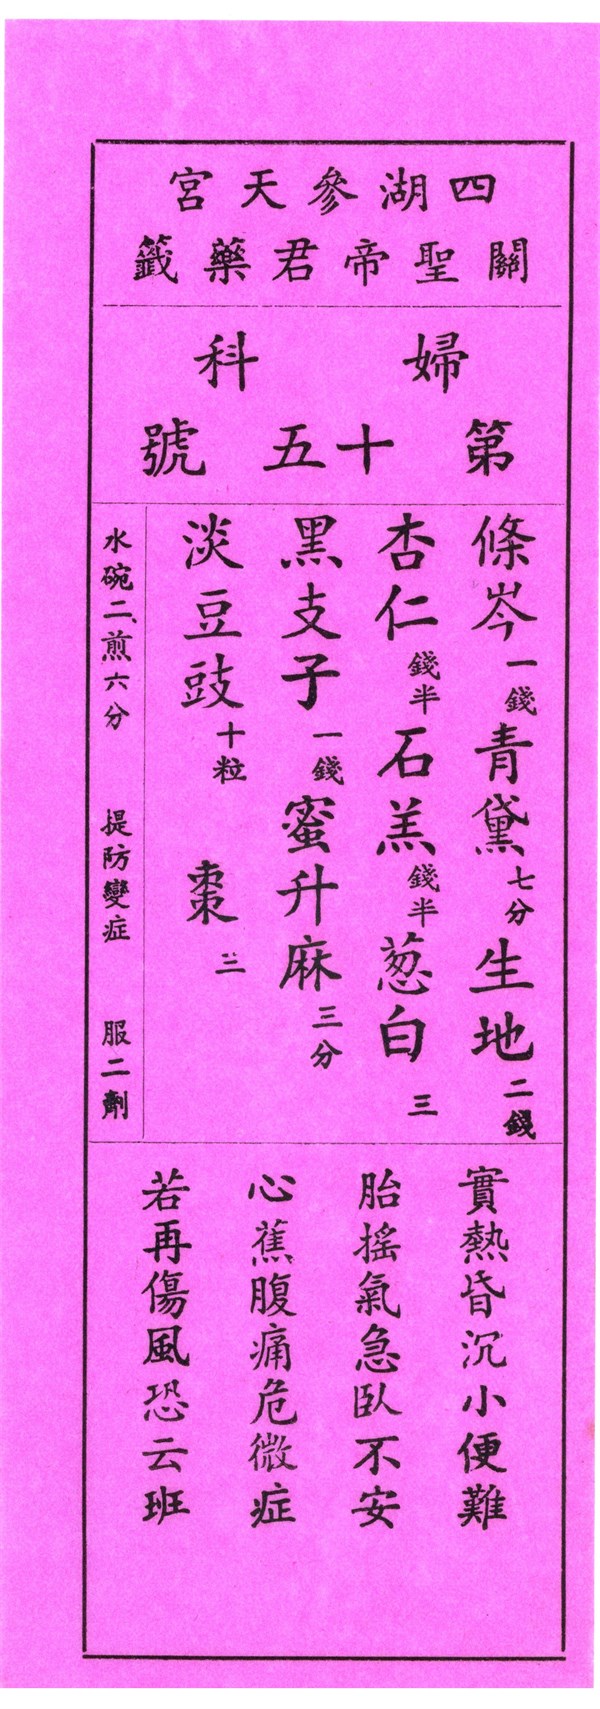 四湖參天宮
關聖帝君藥籤
婦科
第十五號
條岑一錢青黛七分生地二錢
杏仁錢半石羔錢半葱白三
黑支子一錢蜜升麻三分
淡豆豉十粒 棗二
水碗二、煎六分 提防變症 服二劑
實熱昏沉小便難
胎搖氣急臥不安
心蕉腹痛危微症
若再傷風恐云班